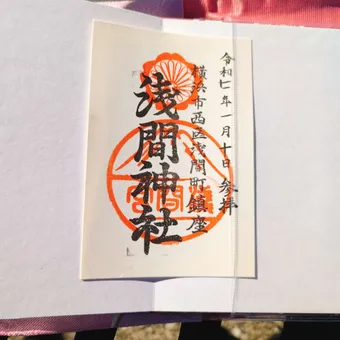 令和七年一月十日 参拝
横浜市西区浅間町鎮座
浅間神社